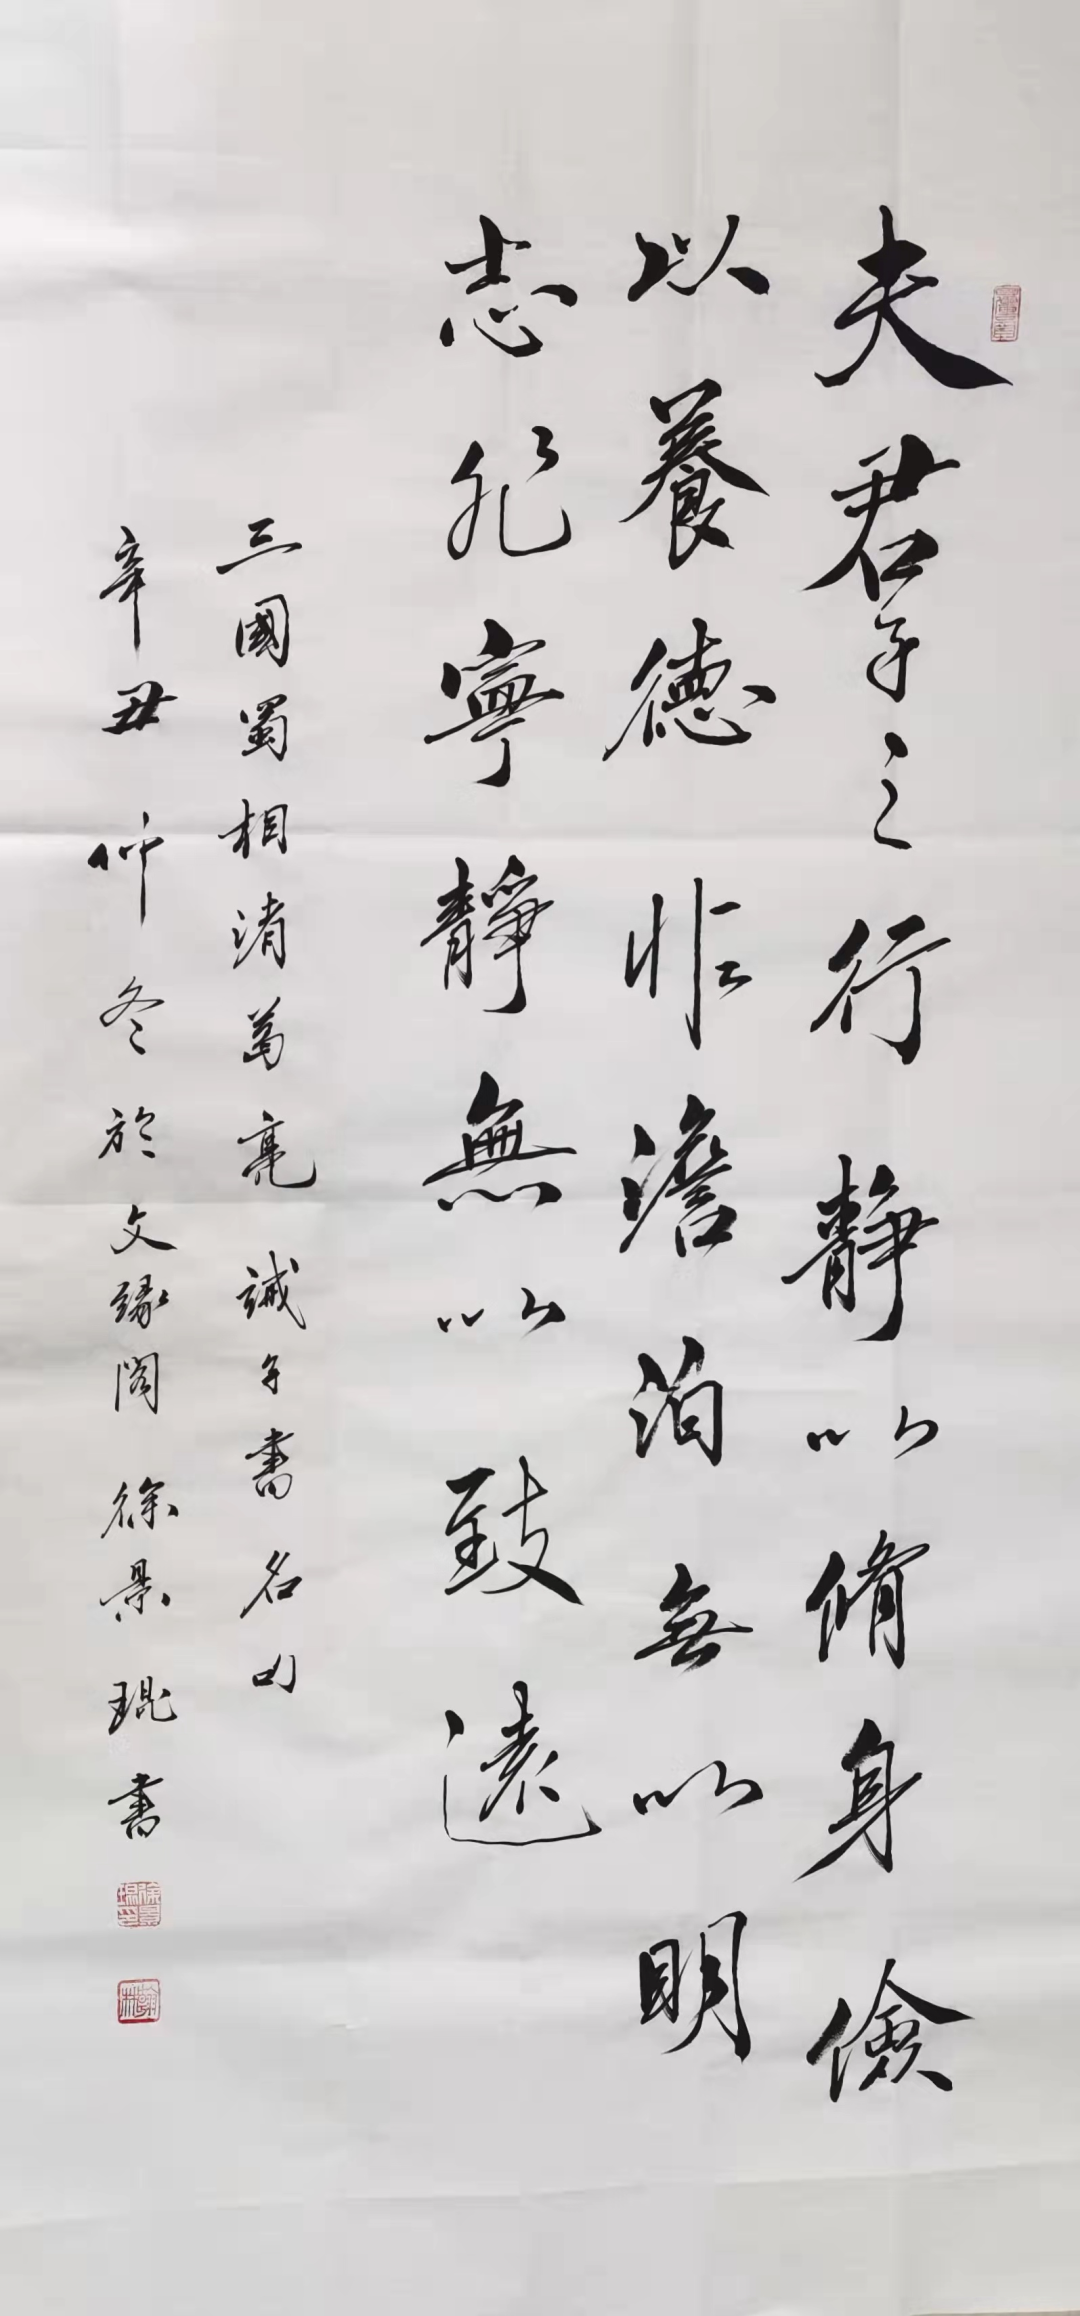 夫君子之行静以脩身儉
以養德非澹泊無以明
志非寧靜無以致遠
三國蜀相诸葛亮誡子書名句
辛丑仲冬於文緣閣徐景琨書
徐景琨印
翰林